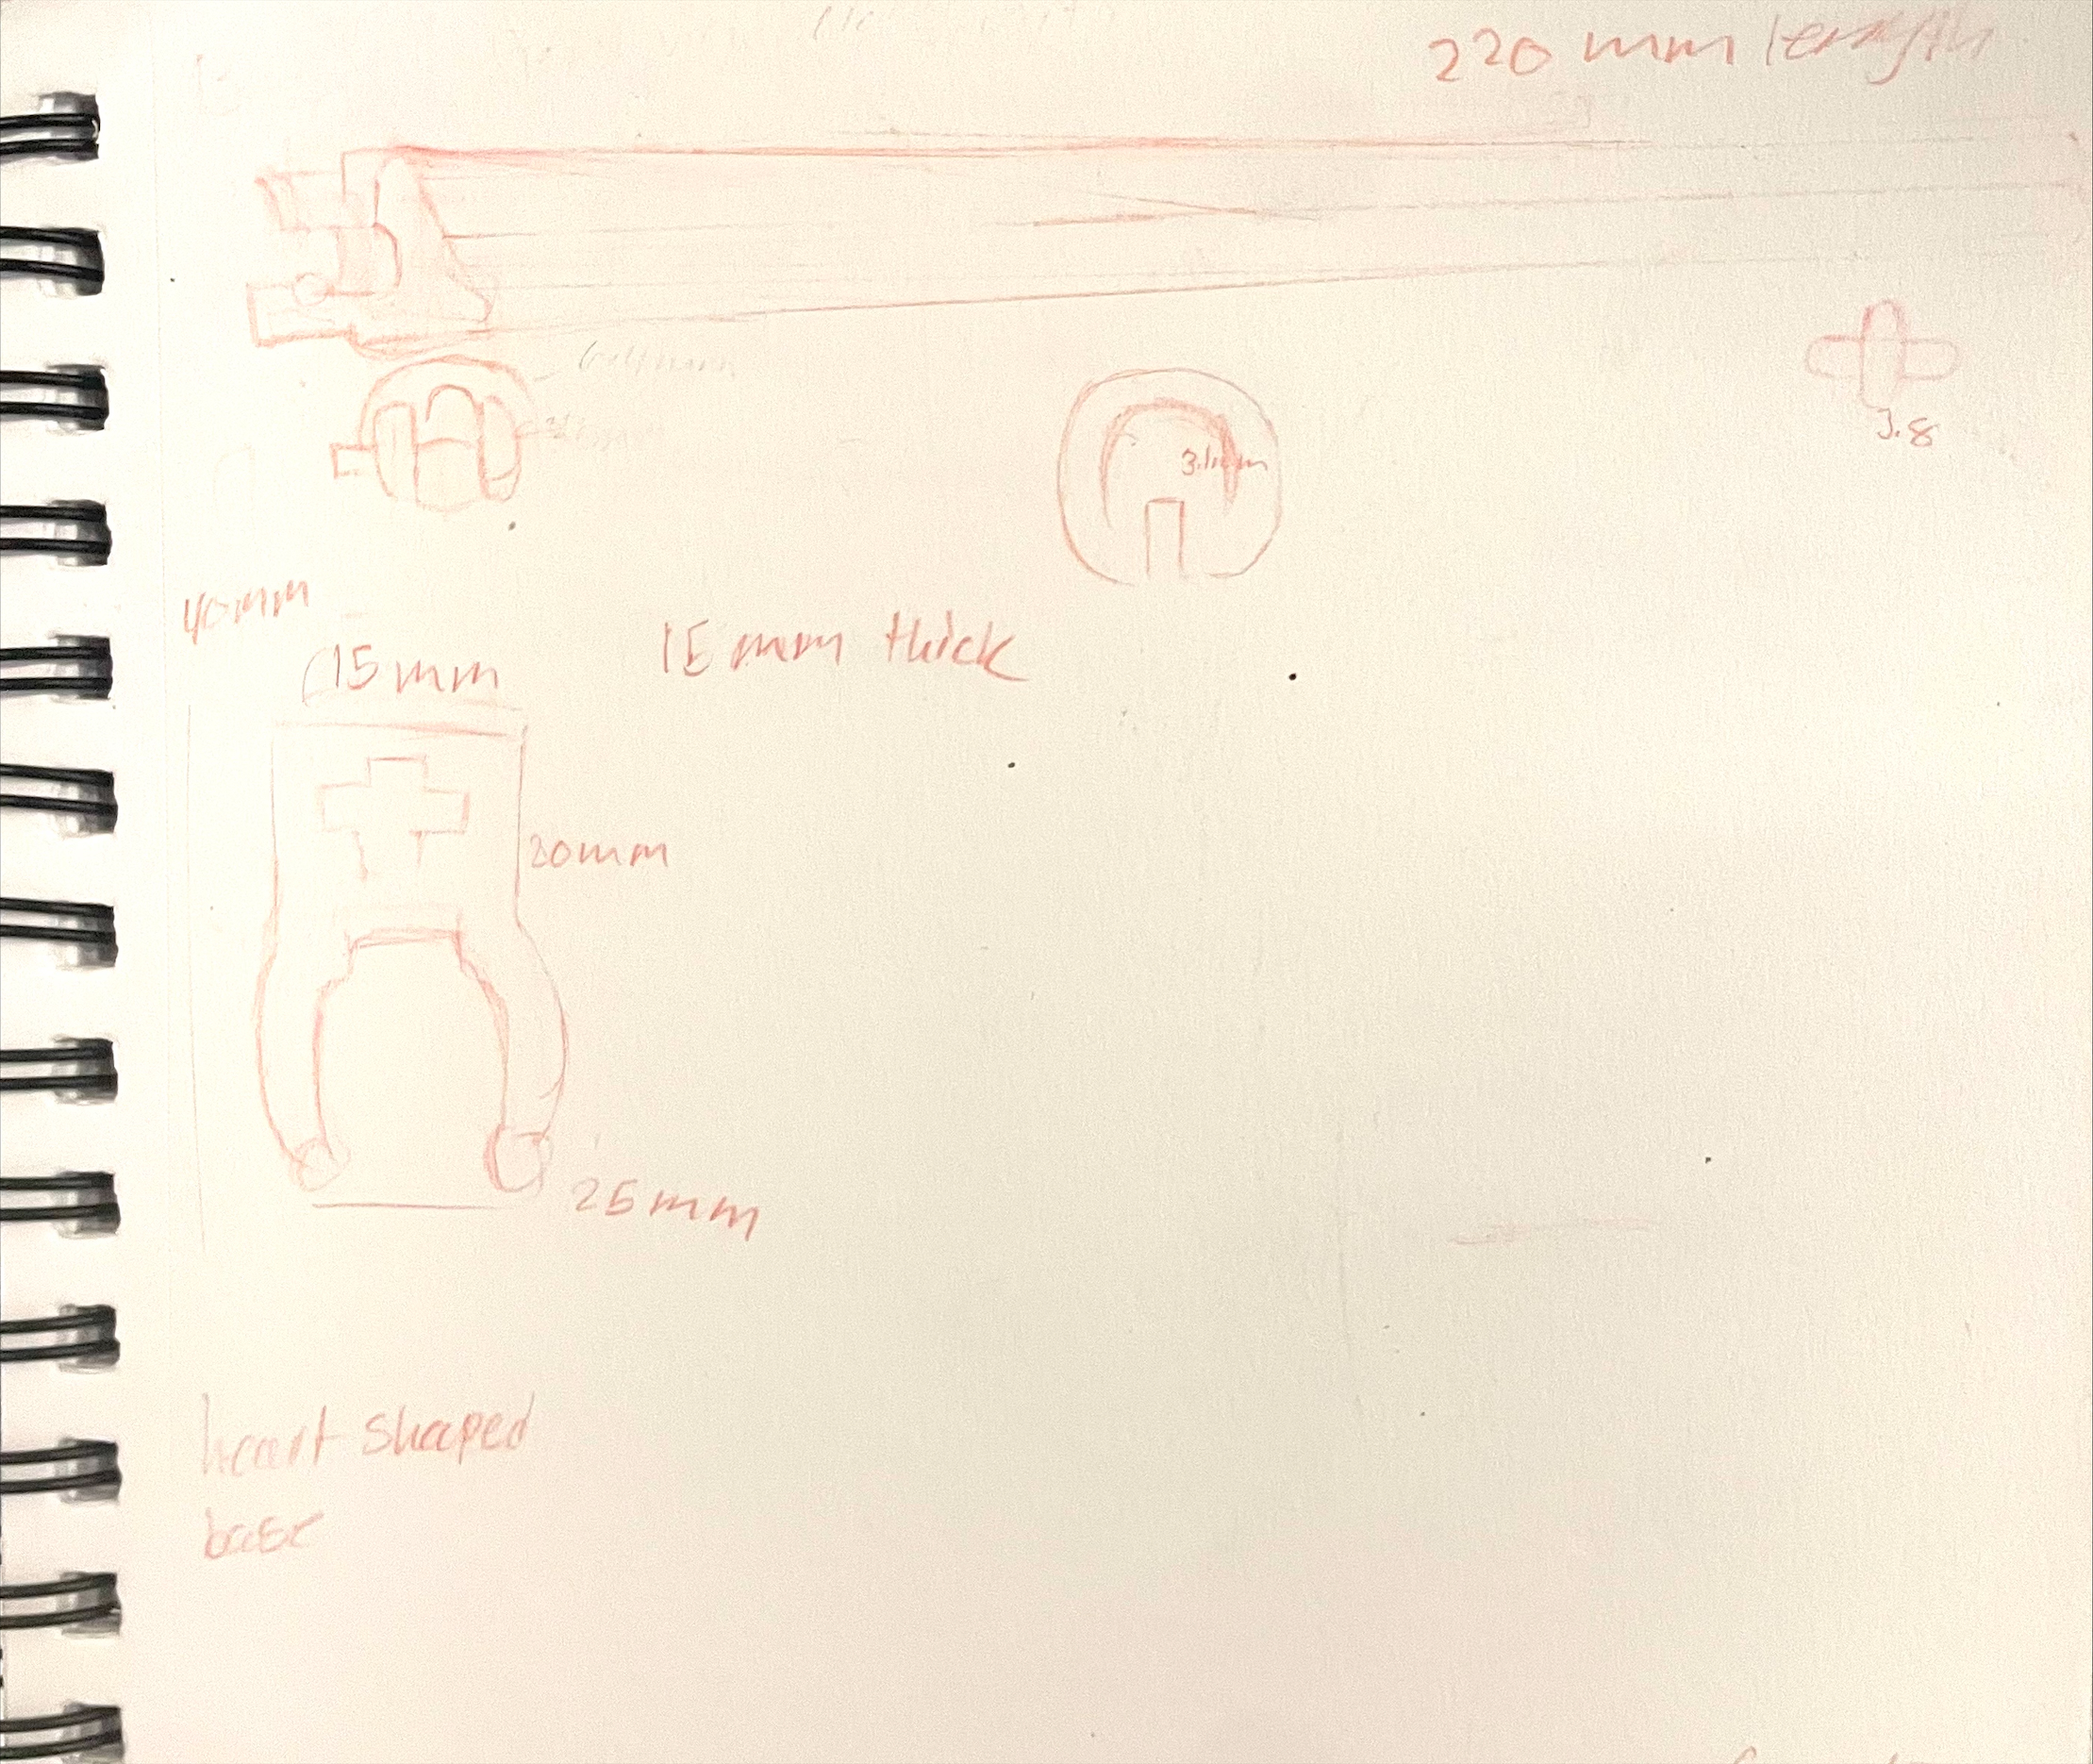 220 mm length
3.8
40mm
15mm
15 mm thick
20mm
25mm
heart shaped
base